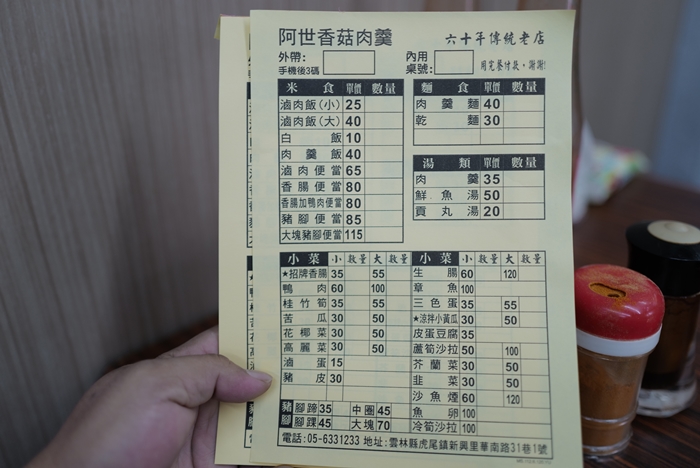 阿世香菇肉羹 六十年傳統老店
外帶: 內用
手機後3碼 桌號: 用完餐付款，謝謝!
米食 單價 數量
滷肉飯(小) 25
滷肉飯(大) 40
白飯 10
肉羹飯 40
滷肉便當 65
香腸便當 80
香腸加鴨肉便當 80
豬腳便當 85
大塊豬腳便當 115
麵食 單價 數量
肉羹麵 40
乾麵 30
湯類 單價 數量
肉羹 35
鮮魚湯 50
貢丸湯 20
小菜 小 數量 大 數量
★招牌香腸 35 55
鴨肉 60 100
桂竹筍 35 55
苦瓜 30 50
花椰菜 30 50
高麗菜 30 50
滷蛋 15
豬皮 30
小菜 小 數量 大 數量
生腸 60 120
章魚 100
三色蛋 35 55
★涼拌小黃瓜 30 50
皮蛋豆腐 35
蘆筍沙拉 50 100
芥蘭菜 30 50
韭菜 30 50
沙魚煙 60 120
魚卵 100
冷筍沙拉 100
豬腳
腳蹄 35 中圈 45
腳踝 45 大塊 70
電話:05-6331233 地址:雲林縣虎尾鎮新興里華南路31巷1號